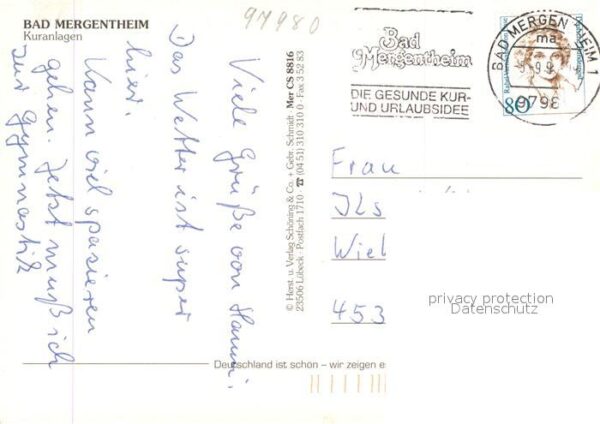 BAD MERGENTHEIM
Kuranlagen
97980
Bad
Mergentheim
DIE GESUNDE KUR-
UND URLAUBSIDEE
BAD MERGENTHEIM 1
ma
80
Viele Grüße von Hanni!
Das Wetter ist super
hier.
Kann viel spazieren
gehen. Jetzt muß ich
zur Gymnastik
© Herst. u. Verlag Schöning & Co. + Gebr. Schmidt Mer CS 8816
23506 Lübeck · Postfach 1710 · ☎ (04 51) 310 310 0 · Fax 3 52 83
Frau
Ils
Wiel
453
privacy protection
Datenschutz
Deutschland ist schön – wir zeigen es